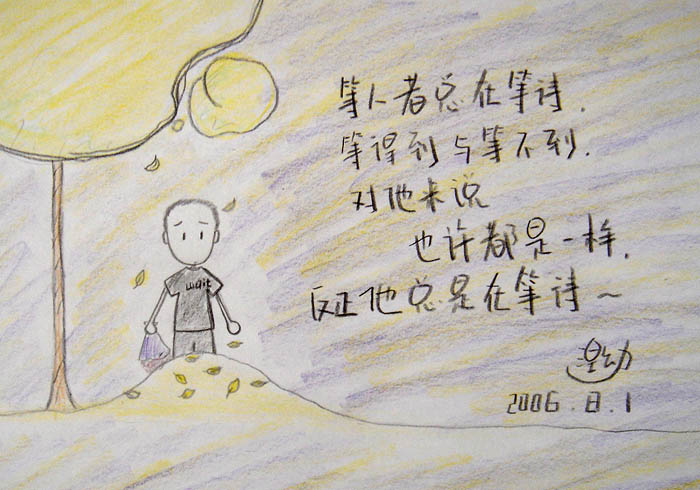 等人者总在等待,
等得到与等不到.
对他来说
也许都是一样,
反正他总是在等待~
wait
2006.8.1